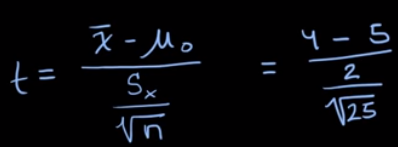 t = \frac{\bar{x} - \mu_0}{\frac{S_x}{\sqrt{n}}} = \frac{4 - 5}{\frac{2}{\sqrt{25}}}